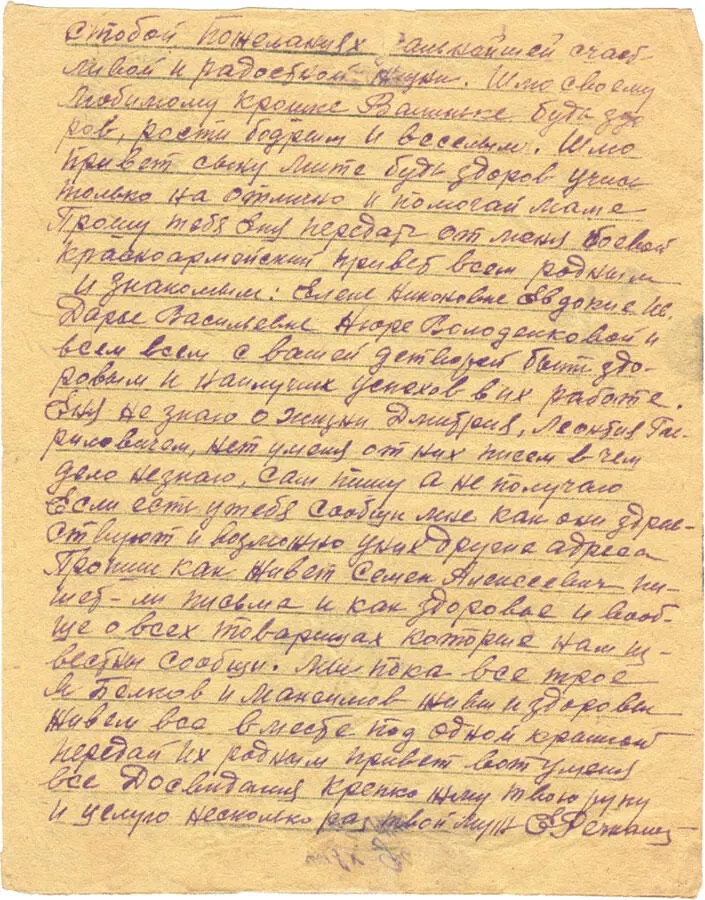 с тобой Пожеланиях дальнейшей счаст-
ливой и радостной жизни. Шлю своему
любимому крошке Валиньке будь здо
ров, расти бодрым и веселым. Шлю
привет сыну Мите будь здоров учись
только на отлично и помогай маме
Прошу тебя Еня передать от меня боевой
красноармейский привет всем родным
и знакомым: Елене Никоновне Евдокие Ив.
Дарье Васильевне Нюре Володенковой и
всем всем с вашей детворой быть здо-
ровым и наилучших успехов в их работе.
Еня не знаю о жизни Дмитрия, Леонтия Гав-
риловичем, нет у меня от них писем в чем
дело незнаю, сам пишу а не получаю
Если есть у тебя сообщи мне как они здрав-
ствуют и возможно у них другие адреса
Пропиши как живет Семен Алексеевич пи-
шет-ли письма и как здоровье и вооб-
ще о всех товарищах которые нам из-
вестны сообщи. Мы пока все трое
Я Белков и Максимов живы и здоровы
живем все вместе под одной крышой
передай их родным привет вот у меня
все Досвидания Крепко жму твою руку
и целую несколько раз твой муж Е